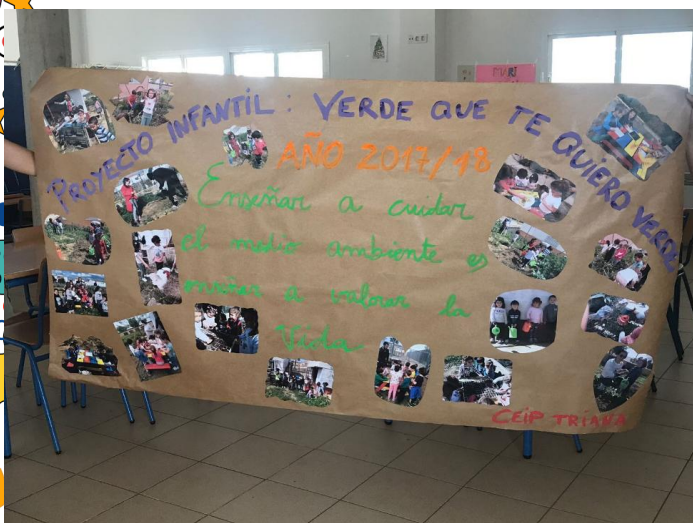 PROYECTO INFANTIL: VERDE QUE TE QUIERO VERDE
AÑO 2017/18
Enseñar a cuidar
el medio ambiente es
enseñar a valorar la
Vida
CEIP TRIANA